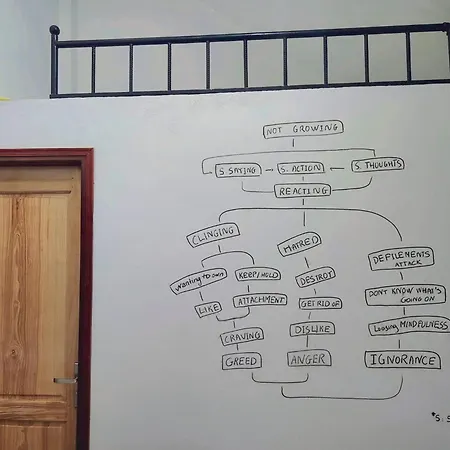 NOT GROWING
S. SAYING S. ACTION S. THOUGHTS
REACTING
CLINGING
HATRED
DEFILEMENTS
ATTACK
Wanting to own
KEEP/HOLD
DESTROY
DON'T KNOW WHAT'S
GOING ON
LIKE
ATTACHMENT
GET RID OF
Loosing MINDFULNESS
CRAVING
DISLIKE
GREED
ANGER
IGNORANCE
*S.